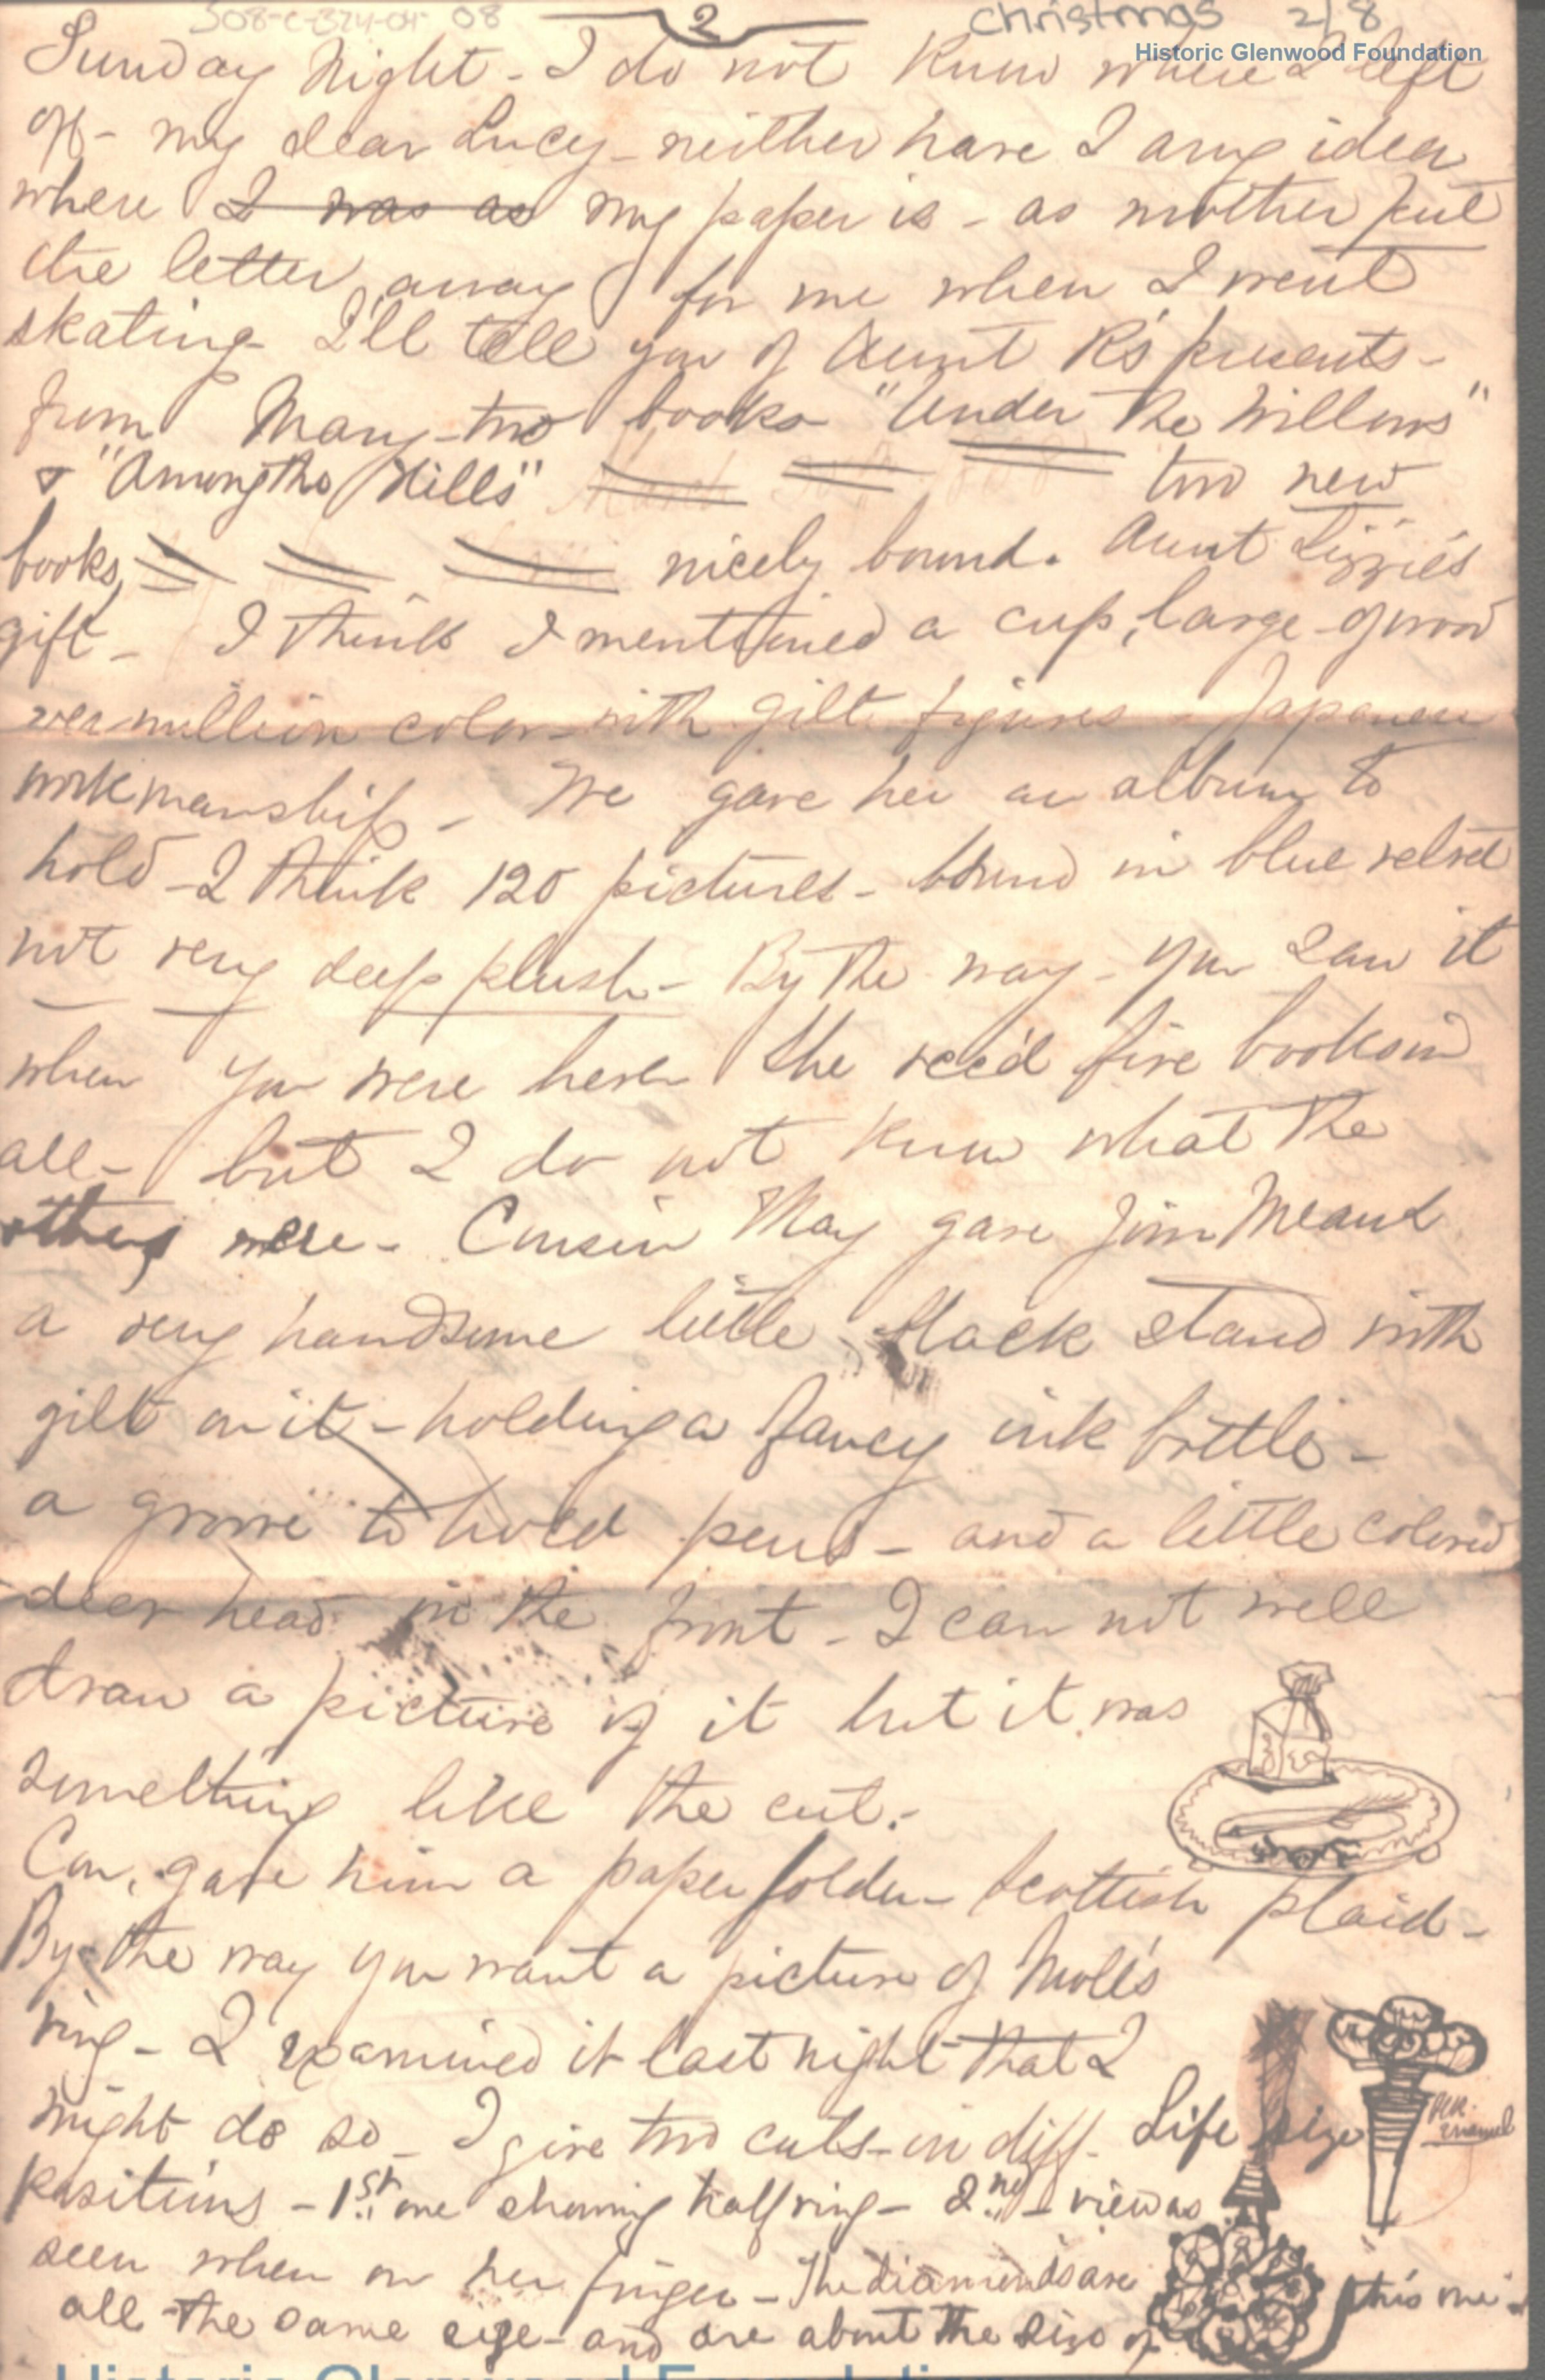 308-C-324-04- 08 2 Christmas 2/8
Historic Glenwood Foundation
Sunday Night - I do not know where I left
off - my dear Lucy - neither have I any idea
where I was as my paper is - as mother put
the letter away for me when I went
skating - I'll tell you of Aunt R's presents -
from Mary - two books "Under the Willows"
& "Among the Hills" two new
books, nicely bound. Aunt Lizzie's
gift - I think I mentioned a cup, large - of wood
vermillion color - with gilt figures - Japanese
workmanship - We gave her an album to
hold - I think 120 pictures - bound in blue velvet
not very deep plush - By the way - you saw it
when you were here She rec'd five books in
all - but I do not know what the
others were - Cousin May gave Jim Meant
a very handsome little black stand with
gilt on it - holding a fancy ink bottle -
a groove to hold pens - and a little colored
deer head in the front - I can not well
draw a picture of it but it was
something like the cut. -
Con. gave him a paper folder - Scottish plaid -
By the way you want a picture of Moll's
ring - I examined it last night that I
might do so - I give two cuts - in diff. Life size
Blk. Enamel
positions - 1st one showing half ring - 2nd - view as
seen when on her finger - The diamonds are
all the same size - and are about the size of this one -
Historic Glenwood Foundation